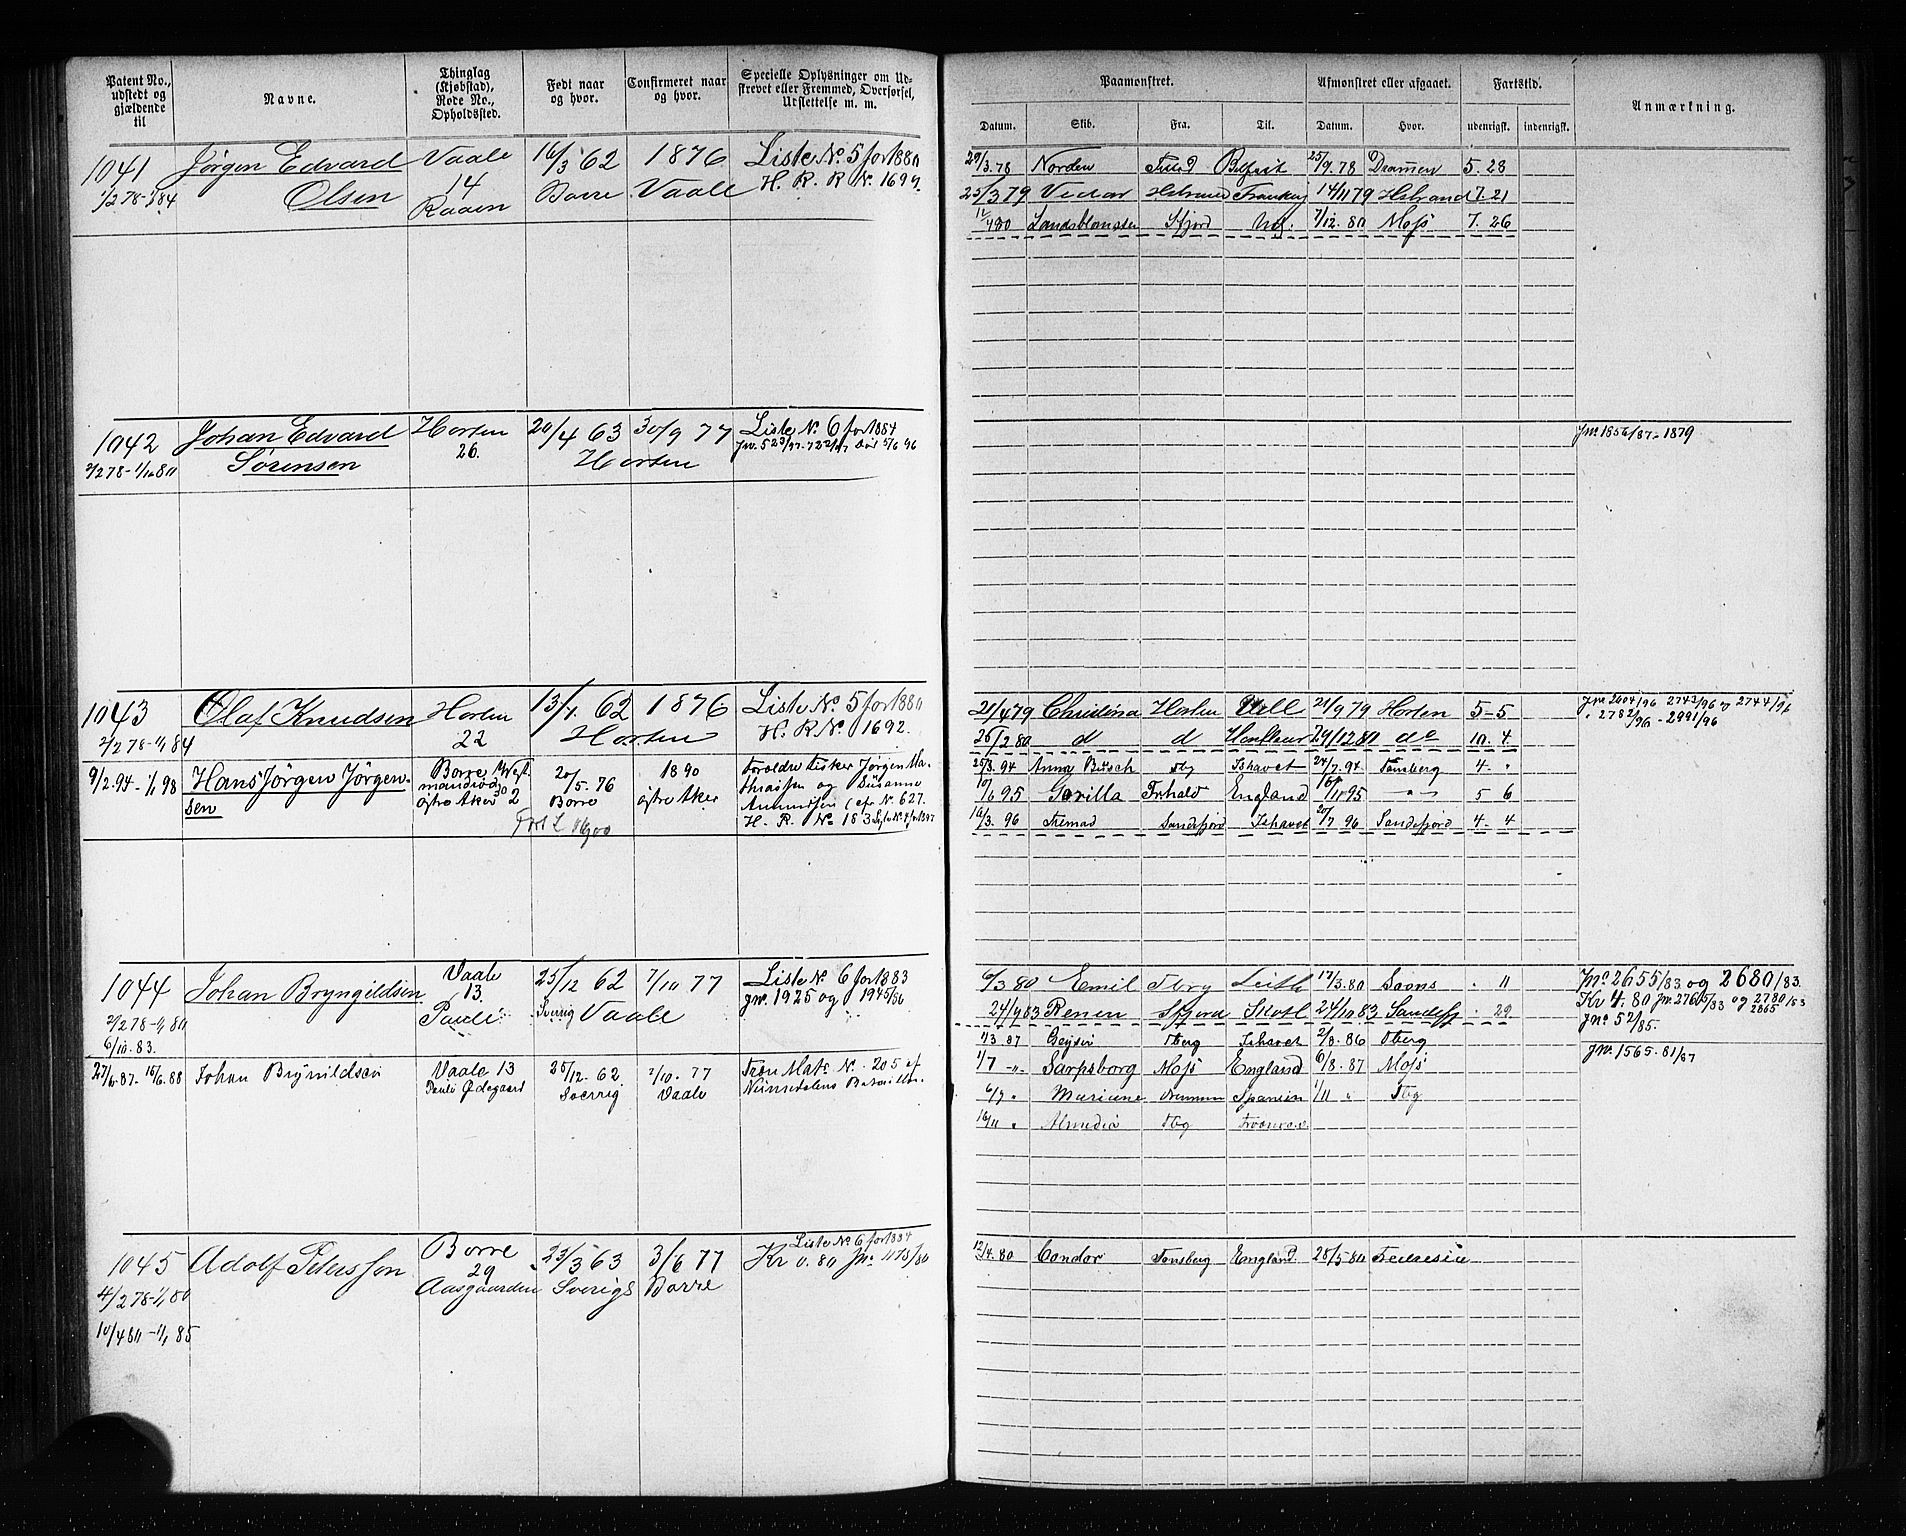 Patent No., udstedt og gjældende til
Navne.
Thinglag (Kjøbstad), Rode No., Opholdssted.
Født naar og hvor.
Confirmeret naar og hvor.
Specielle Oplysninger om Udskrevet eller Fremmed, Overførsel, Udslettelse m. m.
Paamønstret.
Afmønstret eller afgaaet.
Fartstid.
Anmærkning.
Datum. Skib. Fra. Til. Datum. Hvor. udenrigsk. indenrigsk.
1041 Jørgen Edvard Vaale 16/3 62 1876 Liste No. 5 for 1880
1/2 78-1/1 84 Olsen 14 Borre Vaale H. R. R No. 1697.
Raaen
29/3.78 Norden Belfast 25/9.78 Drammen 5. 28
25/3 79 Vidar 14/11 79 Hstrand 7. 21
12/4 80 Landsblomsten Sfjord 7/12.80 Moss 7. 26
1042 Johan Edvard Horten 20/4 63 30/9 77 Liste No. 6 for 1884
Sørensen 26. Horten
2/2 78-
Jnr. 1856/87 - 1879
1043 Olaf Knudsen Horten 13/1. 62 1876 Liste No. 5 for 1880
2/2 78-1/1 84 22 Horten H. R No. 1692.
21/4 79 Christina Horten Hull 21/9 79 Horten 5-5
26/2 80 d d Honfleur 29/12 80 do 10. 4
Jnr. 2604/96 2743/96 2744/96
2782/96 - 2991/96
9/2.94-1/1 98 Hans Jørgen Jørgensen Borre 20/5.76 1890 Forældre Fisker Jørgen Mathiassen og Susanne
østre Aker 2 Borre østre Aker Amundsen (cfr No. 627.
H. R. No 183
25/3.94 Anna Bugsch Tbg Ishavet 24/7.94 Tønsberg 4. "
10/6 95 Gorilla Frhald England 10/11 95 -"- 5 6
16/3.96 Fremad Sandefjord Ishavet 20/7 96 Sandefjord 4. 4
1044 Johan Bryngildsen Vaale 25/12 62 7/10 77 Liste No. 6 for 1883
2/2 78-1/1 80 13. Sverrig Vaale Jnr. 1925 og 1945/86
6/10.83. Pauli
6/3 80 Emil Tbrg Leith 17/3.80 " 11
24/9 83 Renen Sfjord Skotl 24/10 83 Sandefj . 29
1/3 87 Geysir Tberg Ishavet 2/8.86 Tberg
Jnr. 2655/83 og 2680/83.
Kr 4.80 Jnr. 2765/83 og 2780/83
2865
Jnr. 52/85.
27/6.87-15/6.88 Johan Brynildsen Vaale 13 25/12.62 7/10.77 Tron Mats No. 205 af
Pauli Ødegaard Sverrig Vaale Nummedalens Bataillon.
1/7 -"- Sarpsborg Moss England 6/8.87 Moss
6/9 " Mariane Spanien 1/11 " Tbg
16/11 " Almedia Tbg
Jnr. 1565.81/87
1045 Adolf Petersson Borre 23/3 63 3/6 77 Liste No. 6 for 1884
4/2 78-1/1 80 29 Sverige Borre Kr 0.80 Jnr. 1175/80
10/4 80-1/1 85 Aasgaarden
12/4.80 Condor Tønsberg England. 28/5 80